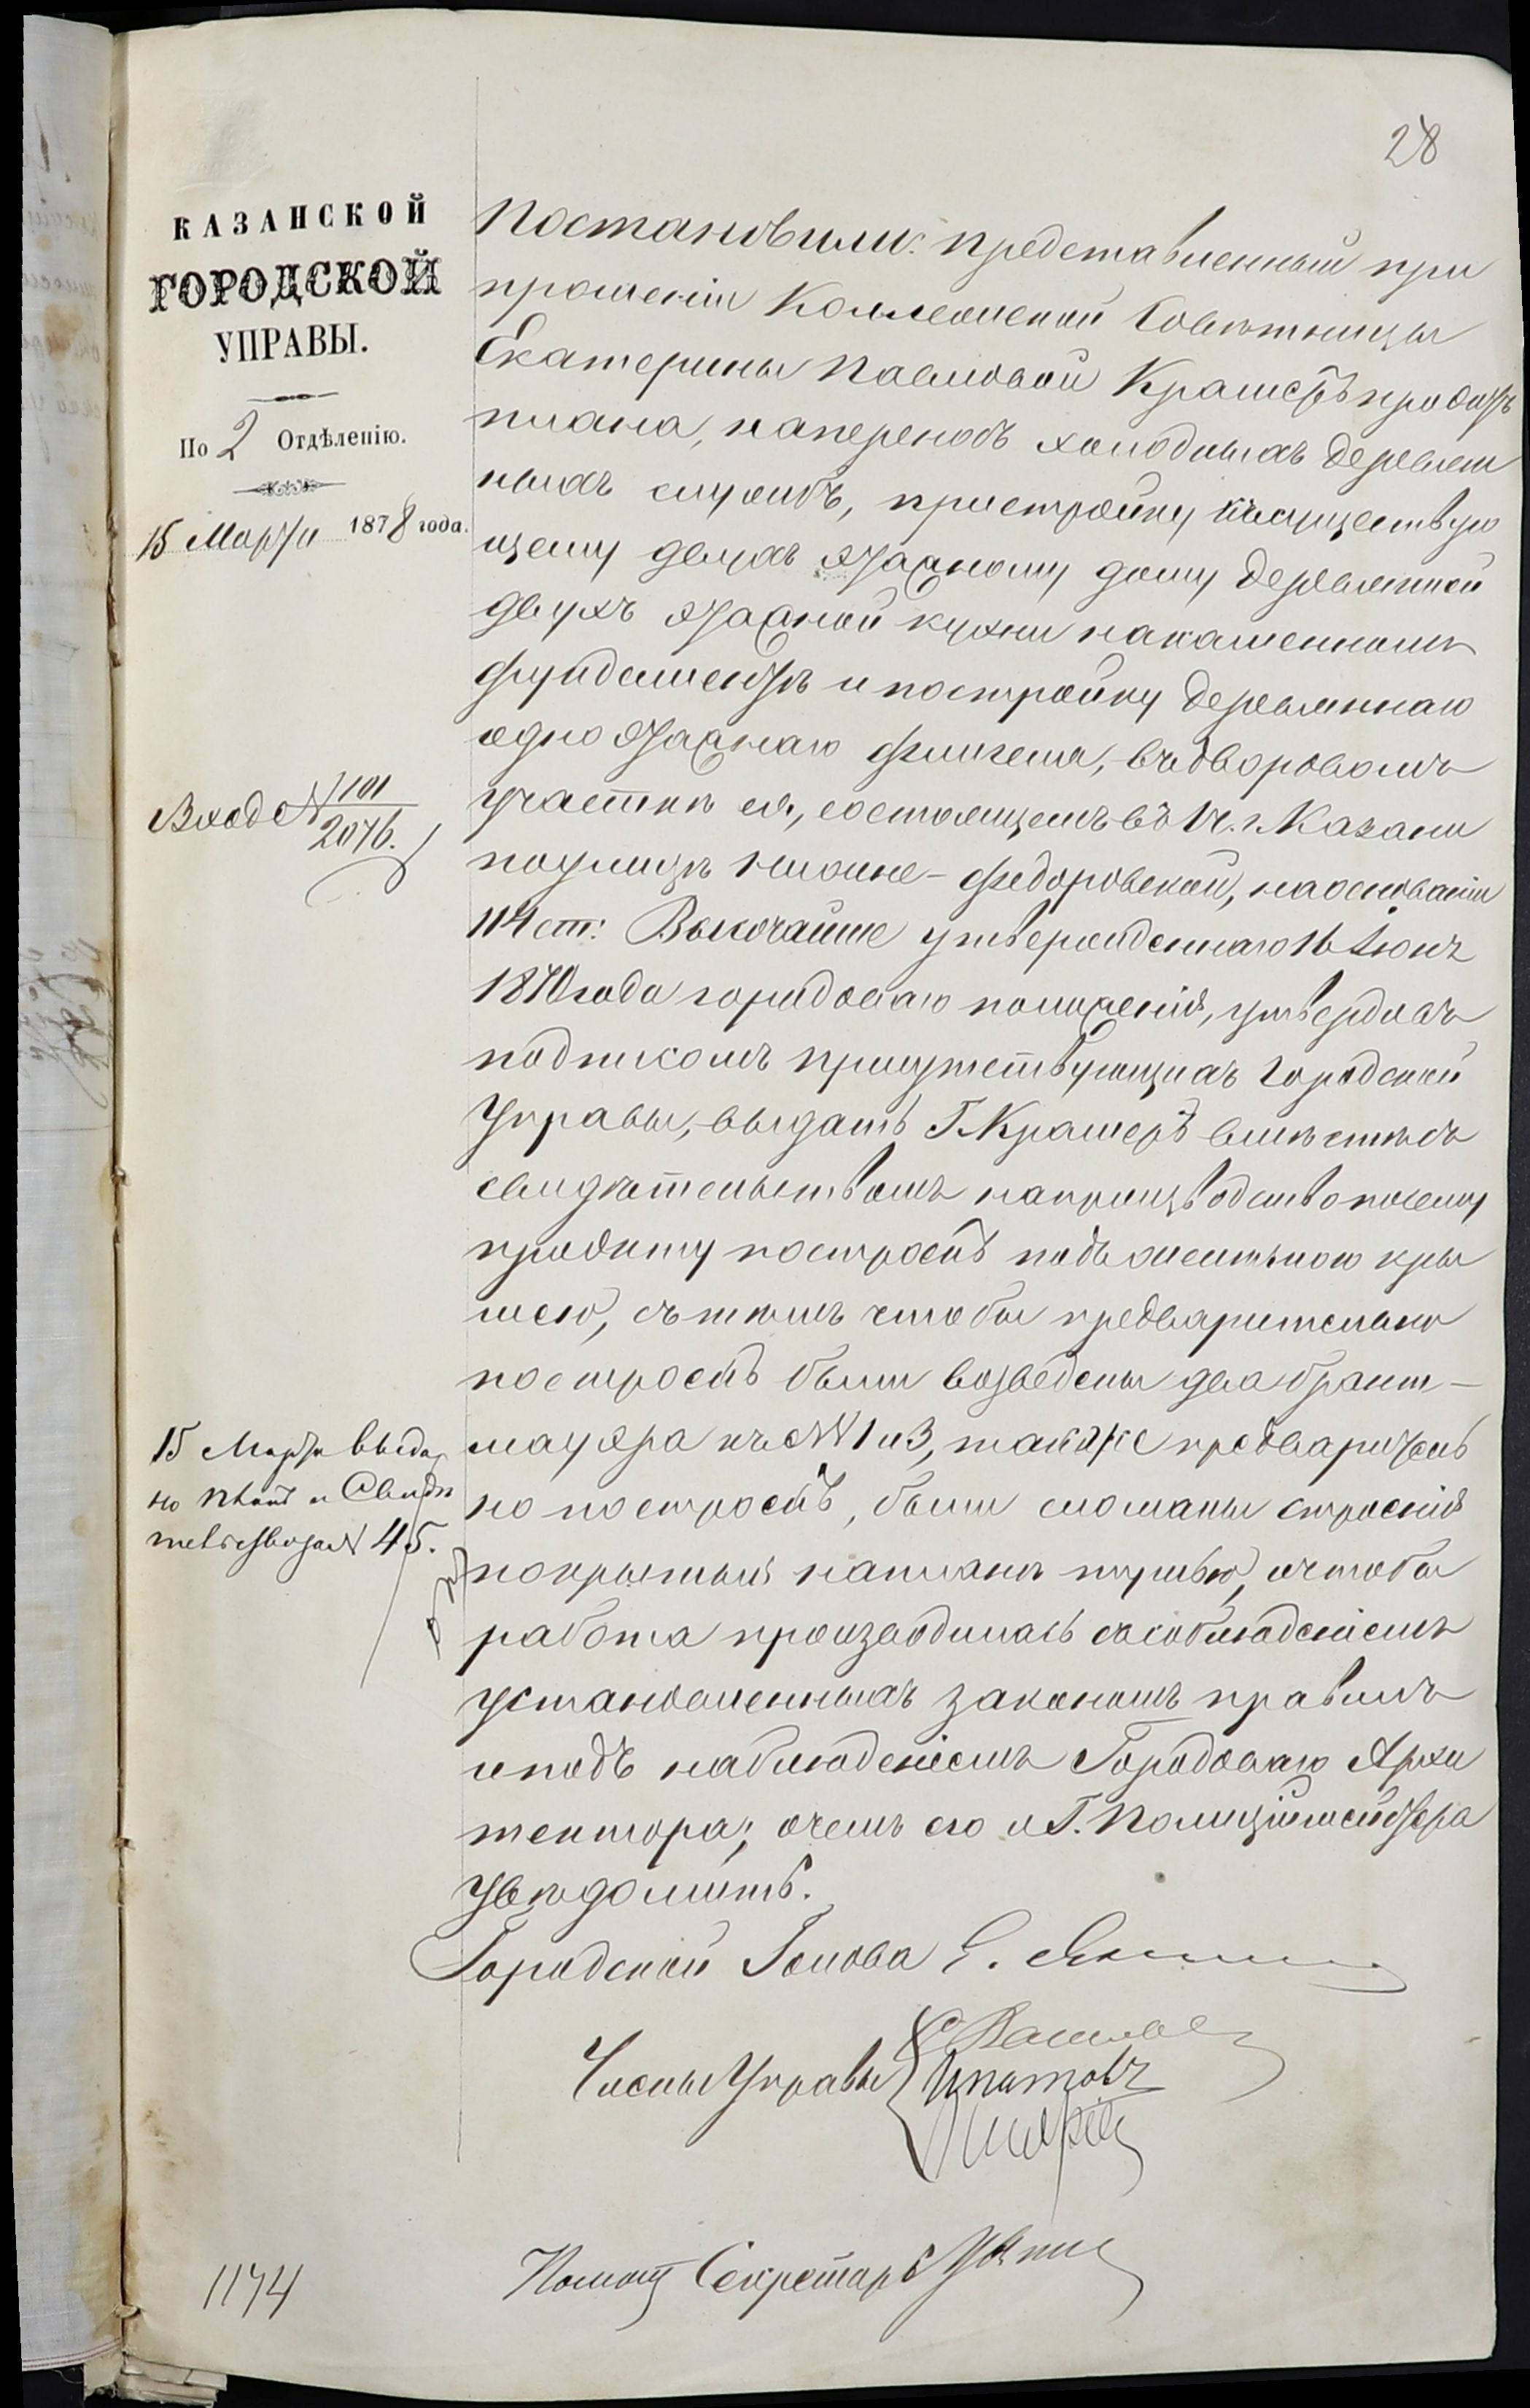 28
КАЗАНСКОЙ
ГОРОДСКОЙ
УПРАВЫ.
По 2 Отдѣленію.
15 Марта 1878 года.
Вход № 101
2076.
15 Марта выда
но планъ и Свидѣ
тельство за № 45.
1174
Постановили: представленный при
прошеніи Коллежской Совѣтницы
Екатерины Павловой Крамеръ проэктъ
плана, на переносъ холодныхъ деревян
ныхъ службъ, пристройку къ существую
щему двухъ этажному дому деревянной
двухъ этажной кухни на каменномъ
фундаментѣ и постройку деревяннаго
одно этажнаго флигеля, въ дворовомъ
участкѣ ея, состоящемъ въ 1 ч. г. Казани
по улицѣ Нижне-Федоровской, на основаніи
114 ст: Высочайше утвержденнаго 16 Іюня
1870 года городоваго положенія, утвердивъ
подписомъ присутствующихъ Городской
Управы, выдать Г. Крамеръ вмѣстѣ съ
свидѣтельствомъ на производство по сему
проэкту построекъ подъ желѣзною кры
шею, съ тѣмъ чтобы предварительно
построекъ были возведены два брант-
мауера къ №№ 1 и 3, также предваритель
но построекъ, были сломаны строенія
покрытыя на планѣ тушью, и чтобы
работа производилась съ соблюденіемъ
установленныхъ закономъ правилъ
и подъ наблюденіемъ Городоваго Архи
тектора; о чемъ его и Г. Полиціймейстера
увѣдомить.
Городской Голова Э. Янишевскій
Члены Управы
Васильевъ
Ипатовъ
Помощ Секретаря